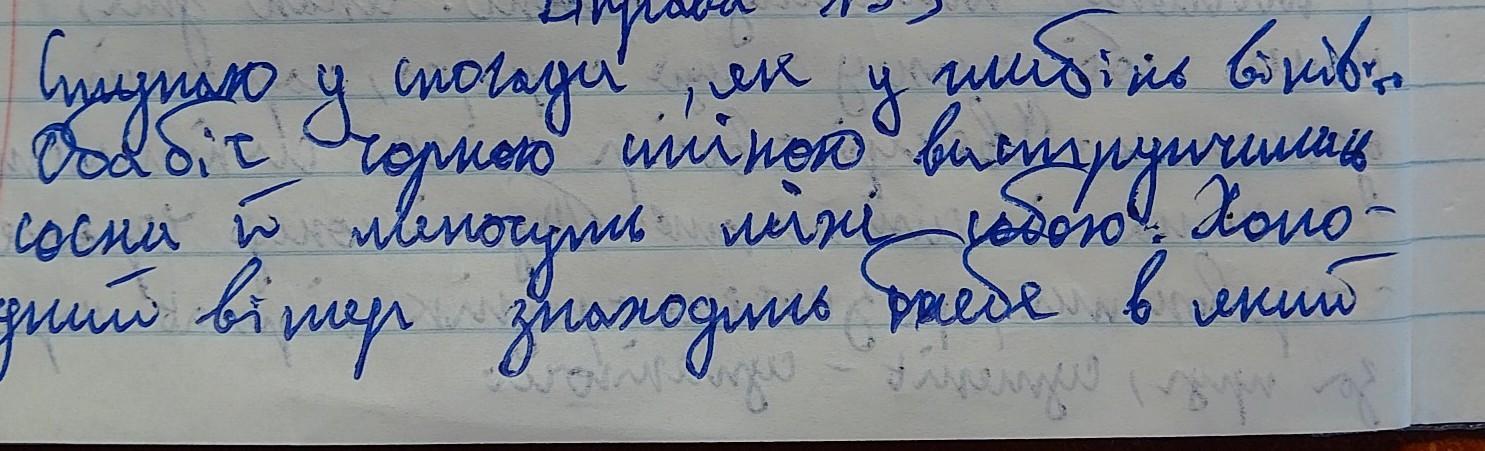 Вправа №3
Ступаю у спогади, як у глибінь віків...
Обабіч чорною стіною виструнчились
сосни й шепочуть між собою. Холо-
дний вітер знаходить тебе в який